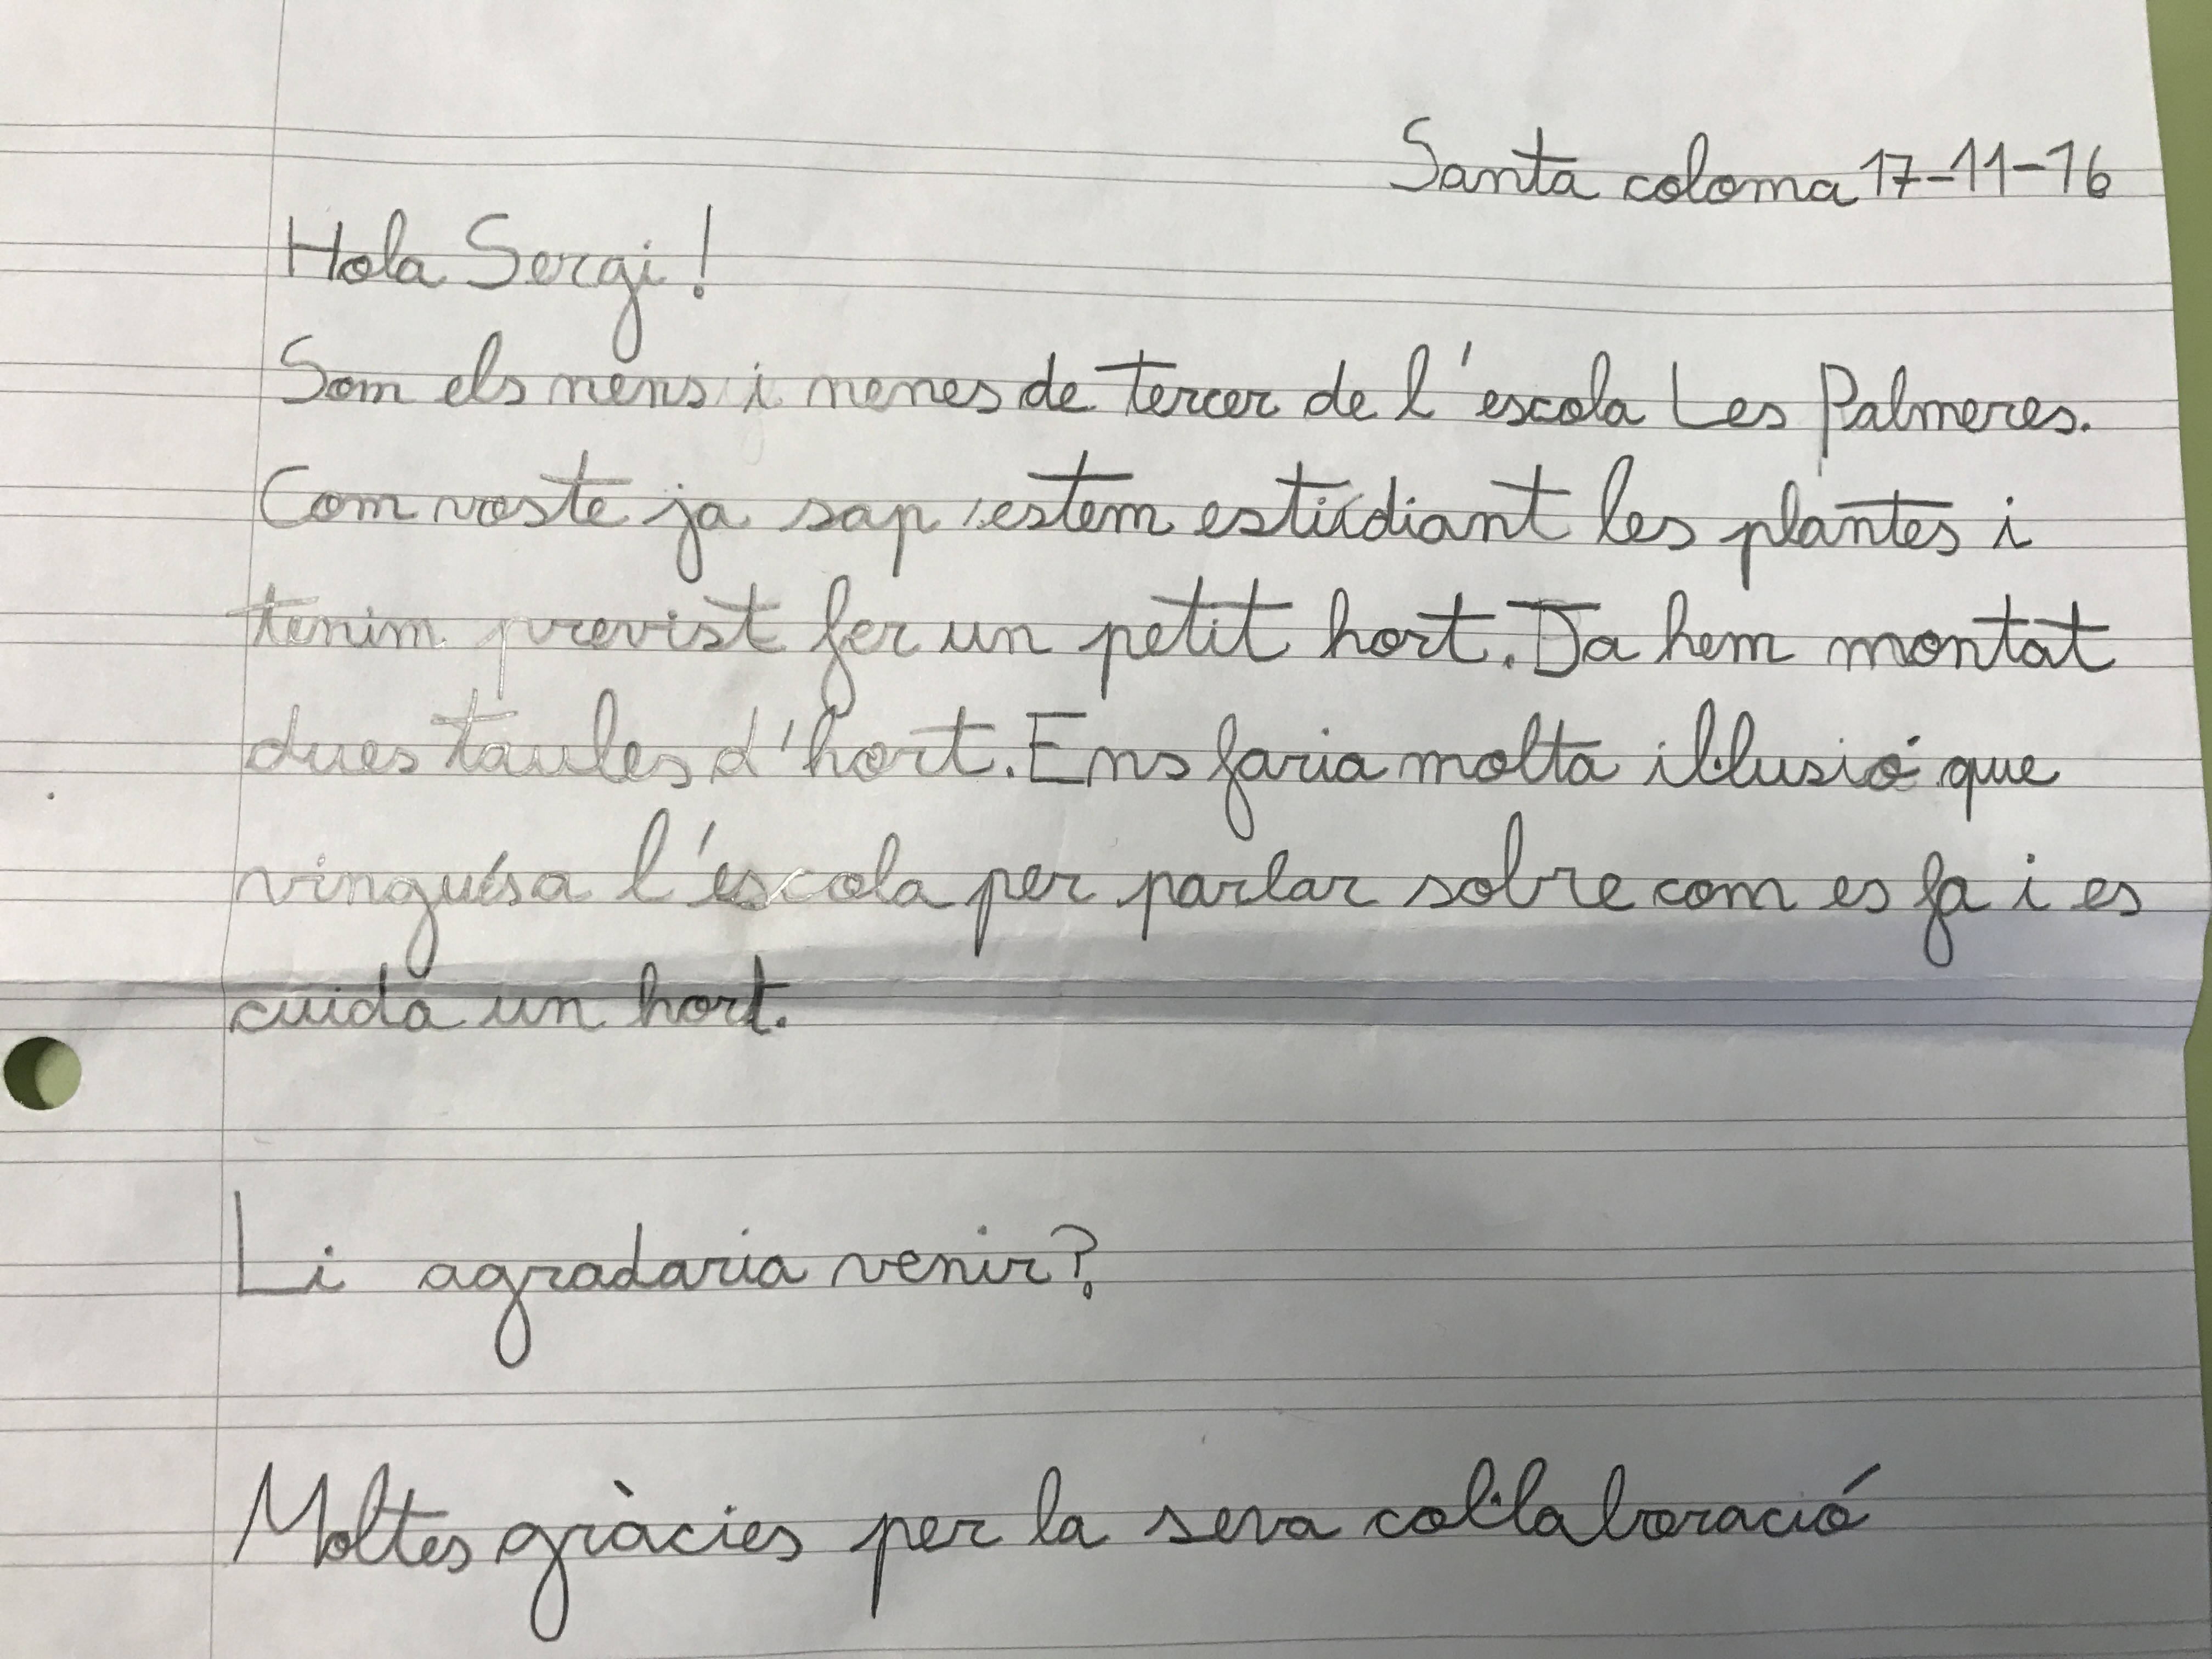 Santa coloma 17-11-16
Hola Sergi!
Som els nens i nenes de tercer de l'escola Les Palmeres.
Com voste ja sap, estem estudiant les plantes i
tenim previst fer un petit hort. Ja hem montat
dues taules d'hort. Ens faria molta il·lusió que
vingués a l'escola per parlar sobre com es fa i es
cuida un hort.
Li agradaria venir?
Moltes gràcies per la seva col·laboració